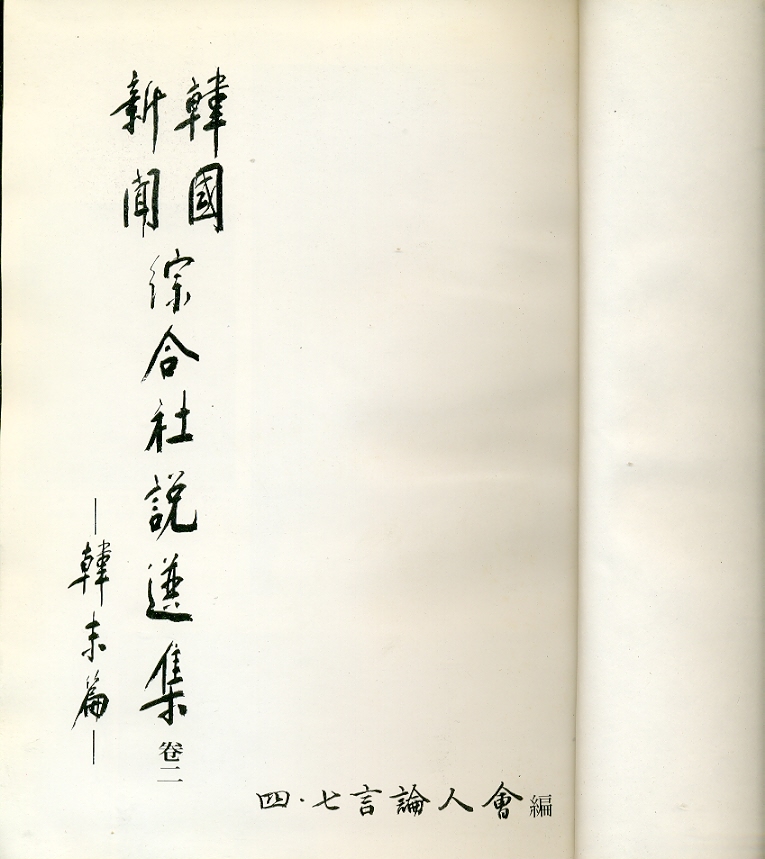 韓國
新聞
綜合社說選集 卷二
─韓末篇─
四·七言論人會 編